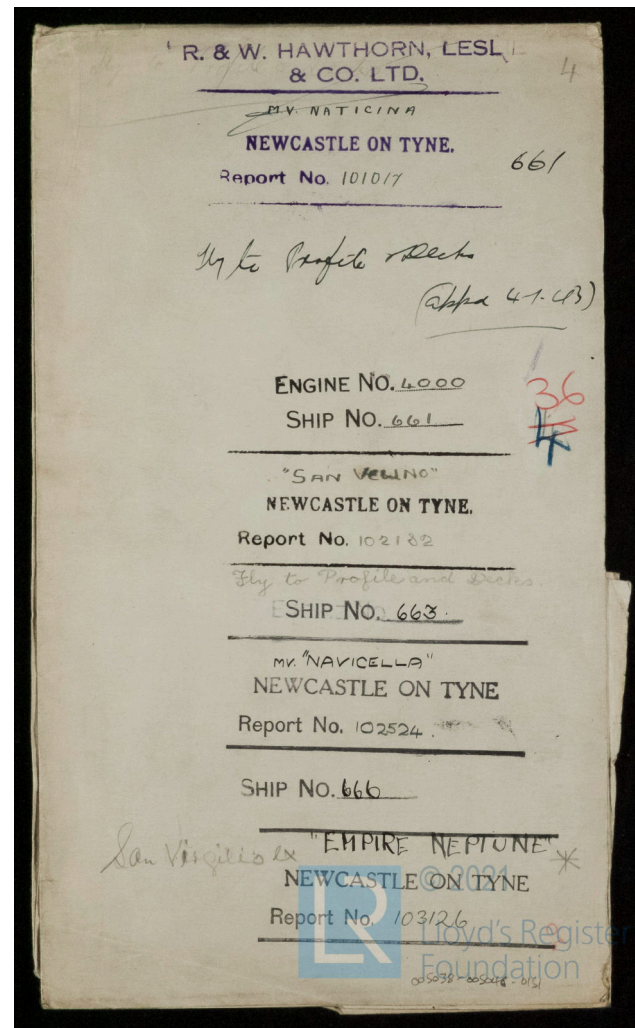 R. & W. HAWTHORN, LESLIE
& CO. LTD.
4
MV. NATICINA
NEWCASTLE ON TYNE.
661
Report No. 101017
Fly to Profile & Decks
(appd 4-1-43)
ENGINE NO. 4000
36
SHIP NO. 661
"SAN VELINO"
NEWCASTLE ON TYNE.
Report No. 102182
Fly to Profile and Decks.
SHIP NO. 663.
MV. "NAVICELLA"
NEWCASTLE ON TYNE
Report No. 102524.
SHIP NO. 666
"EMPIRE NEPTUNE"
San Virgilio ex
NEWCASTLE ON TYNE
Report No. 103126
© 2021
Lloyd's Register
Foundation
005038-005048-0151